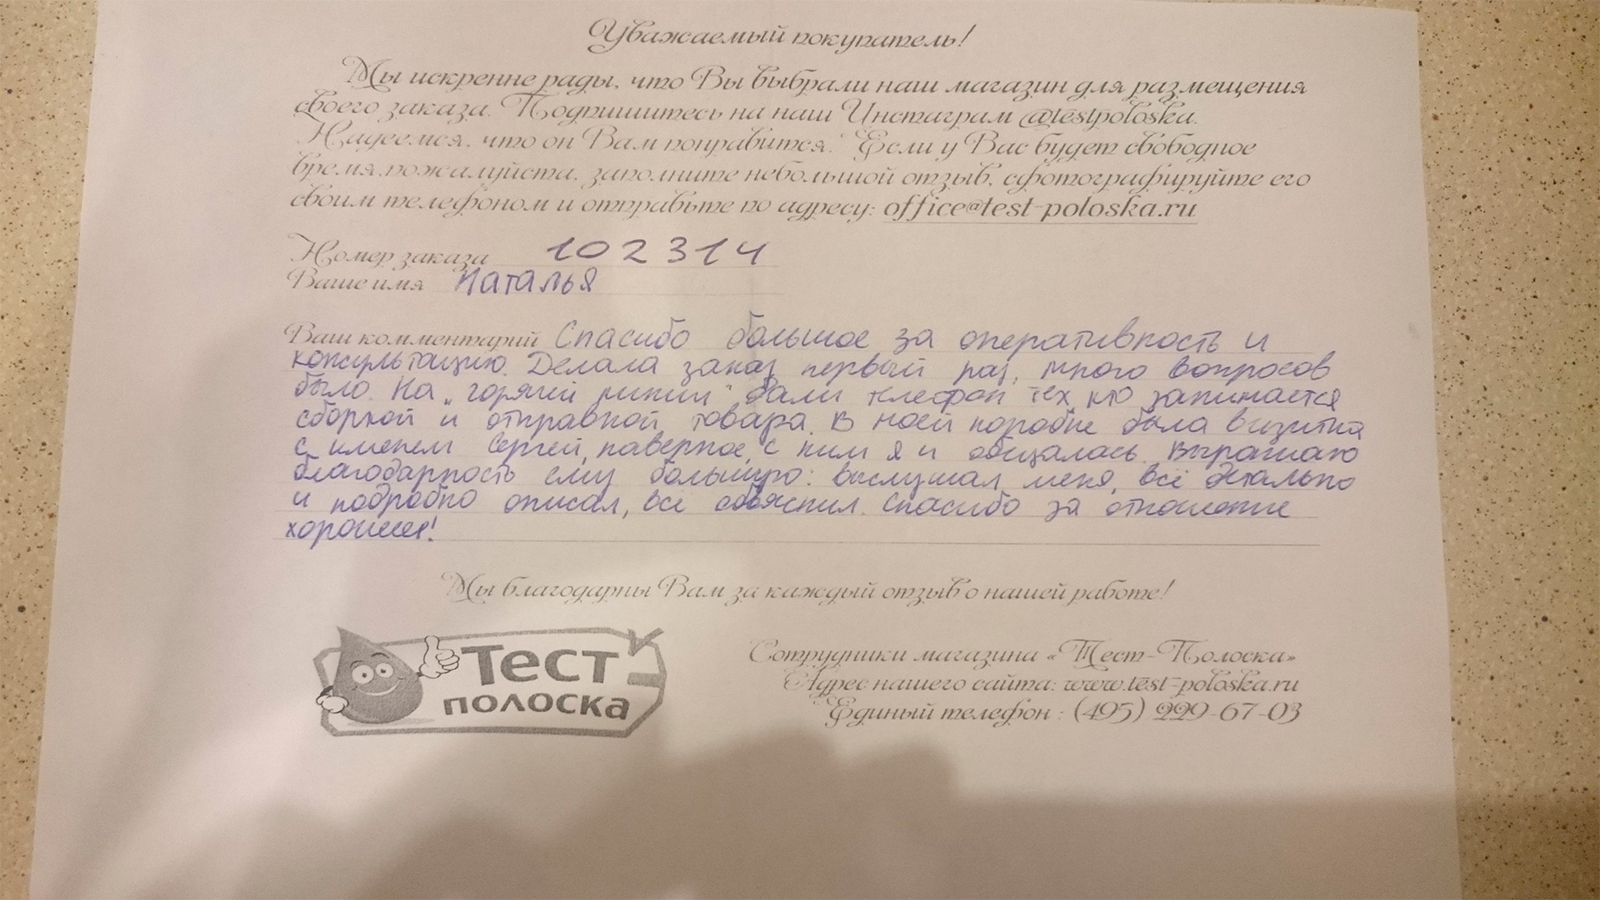 Уважаемый покупатель!
Мы искренне рады, что Вы выбрали наш магазин для размещения
своего заказа. Подпишитесь на наш Инстаграм @testpoloska.
Надеемся, что он Вам понравится. Если у Вас будет свободное
время, пожалуйста, заполните небольшой отзыв, сфотографируйте его
своим телефоном и отправьте по адресу: office@test-poloska.ru
Номер заказа 102314
Ваше имя Наталья
Ваш комментарий Спасибо большое за оперативность и
консультацию. Делала заказ первый раз, много вопросов
было. На "горячей линии" дали телефон тех, кто занимается
сборкой и отправкой товара. В моей коробке была визитка
с именем Сергей, наверное, с ним я и общалась. Выражаю
благодарность ему большую: выслушал меня, всё детально
и подробно описал, всё объяснил. Спасибо за отношение
хорошее!
Мы благодарны Вам за каждый отзыв о нашей работе!
Тест
полоска
Сотрудники магазина «Тест-Полоска»
Адрес нашего сайта: www.test-poloska.ru
Единый телефон : (495) 229-67-03